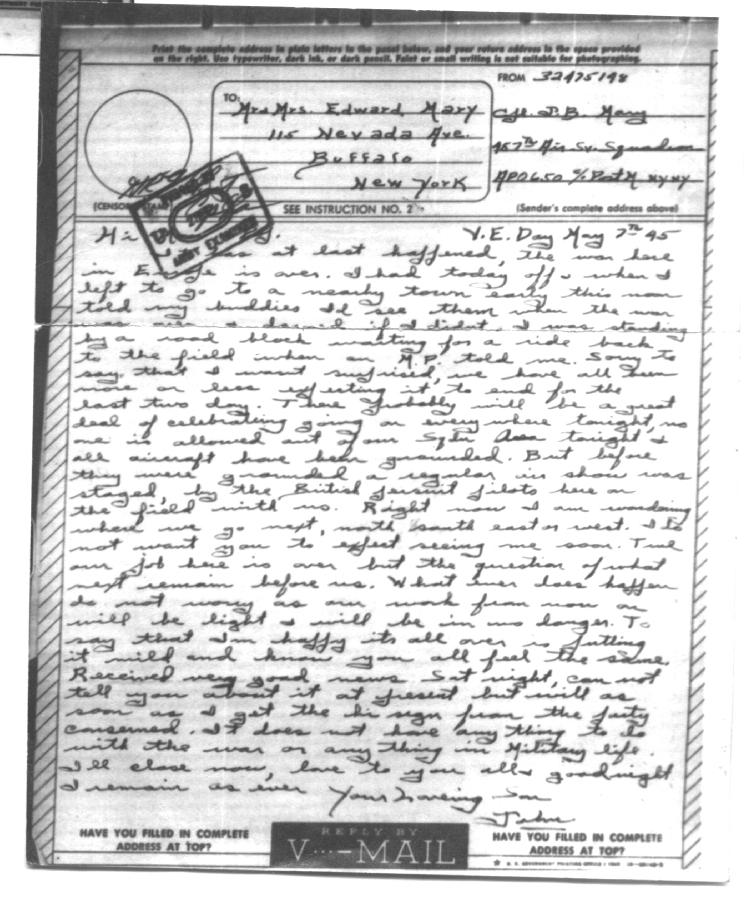 Print the complete address in plain letters in the panel below, and your return address in the space provided
on the right. Use typewriter, dark ink, or dark pencil. Faint or small writing is not suitable for photographing.
FROM 32475148
TO:
Mr & Mrs. Edward Mary
115 Nevada Ave.
Buffalo
New York
Cpl. J.B. Mary
457th Air Sv. Squadron
APO 650 % Post M NY NY
(CENSOR'S STAMP)
SEE INSTRUCTION NO. 2
(Sender's complete address above)
V.E. Day May 7th 45
Hi
has at last happened, the war here
in Europe is over. I had today off & when I
left to go to a nearby town early this noon
told my buddies I'd see them when the war
was over & darned if I didn't. I was standing
by a road block waiting for a ride back
to the field when an M.P. told me. Sorry to
say that I wasnt surprised, we have all been
more or less expecting it to end for the
last two day. There probably will be a great
deal of celebrating going on everywhere tonight, no
one is allowed out of our Sqdn Area tonight &
all aircraft have been grounded. But before
they were grounded a regular air show was
staged, by the British persuit pilots here on
the field with us. Right now I am wondering
where we go next, north south east or west. I do
not want you to expect seeing me soon. True
our job here is over but the question of what
next remain before us. What ever does happen
do not worry as our work from now on
will be light & I will be in no danger. To
say that I'm happy its all over is putting
it mild and know you all feel the same.
Received very good news Sat night, can not
tell you about it at present but will as
soon as I get the hi sign from the party
conserned. It does not have any thing to do
with the war or any thing in Military life.
I'll close now, love to you all & goodnight
I remain as ever Your Loveing Son
John
HAVE YOU FILLED IN COMPLETE
ADDRESS AT TOP?
REPLY BY
V···—MAIL
HAVE YOU FILLED IN COMPLETE
ADDRESS AT TOP?